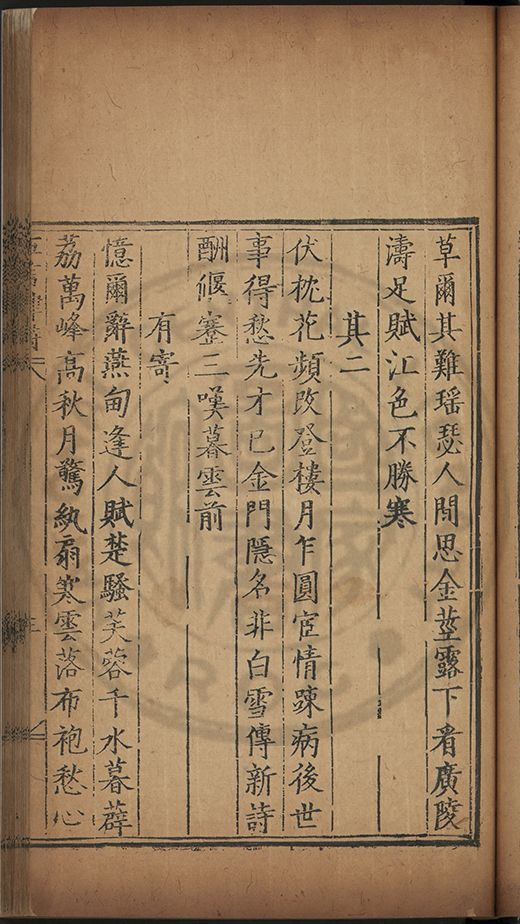 草爾其難瑤瑟人間思金莖露下看廣陵
濤足賦江色不勝寒
其二
伏枕花頻改登樓月乍圓宦情踈病後世
事得愁先才已金門隱名非白雪傳新詩
酬偃蹇三嘆暮雲前
有寄
憶爾辭燕甸逢人賦楚騷芙蓉千水暮薜
荔萬峰高秋月驚紈扇寒雲落布袍愁心